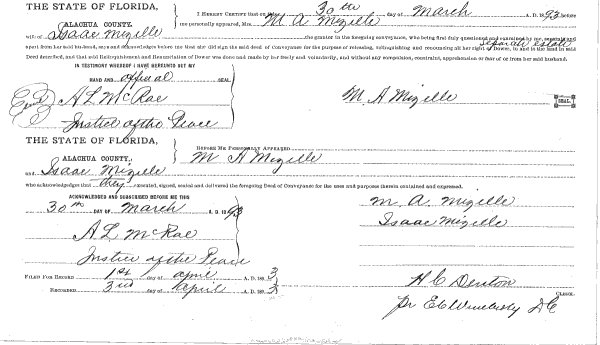 THE STATE OF FLORIDA,
ALACHUA COUNTY.
I HEREBY CERTIFY that on this 30th day of March A.D. 1893 before
me personally appeared, Mrs. M A Mizelle
wife of Isaac Mizelle the grantor in the foregoing conveyance, who being first duly questioned and examined by me, separate and
separate estate
apart from her said husband, says and acknowledges before me that she did sign the said deed of Conveyance for the purpose of releasing, relinquishing and renouncing all her right of Dower, in and to the land in said
Deed described, and that said Relinquishment and Renunciation of Dower was done and made by her freely and voluntarily, and without any compulsion, constraint, apprehension or fear of or from her said husband.
IN TESTIMONY WHEREOF I HAVE HEREUNTO SET MY
HAND AND official SEAL
A L McRae
M A Mizelle
SEAL.
Justice of the Peace
THE STATE OF FLORIDA,
ALACHUA COUNTY,
BEFORE ME PERSONALLY APPEARED
M A Mizelle
and Isaac Mizelle
who acknowledges that they executed, signed, sealed and delivered the foregoing Deed of Conveyance for the uses and purposes therein contained and expressed.
ACKNOWLEDGED AND SUBSCRIBED BEFORE ME THIS
30th DAY OF March A. D. 1893
M. A. Mizelle
Isaac Mizelle
A L McRae
Justice of the Peace
FILED FOR RECORD 1st day of April A. D. 1893
RECORDED 3rd day of April A. D. 1893
H C Denton
CLERK.
pr D C